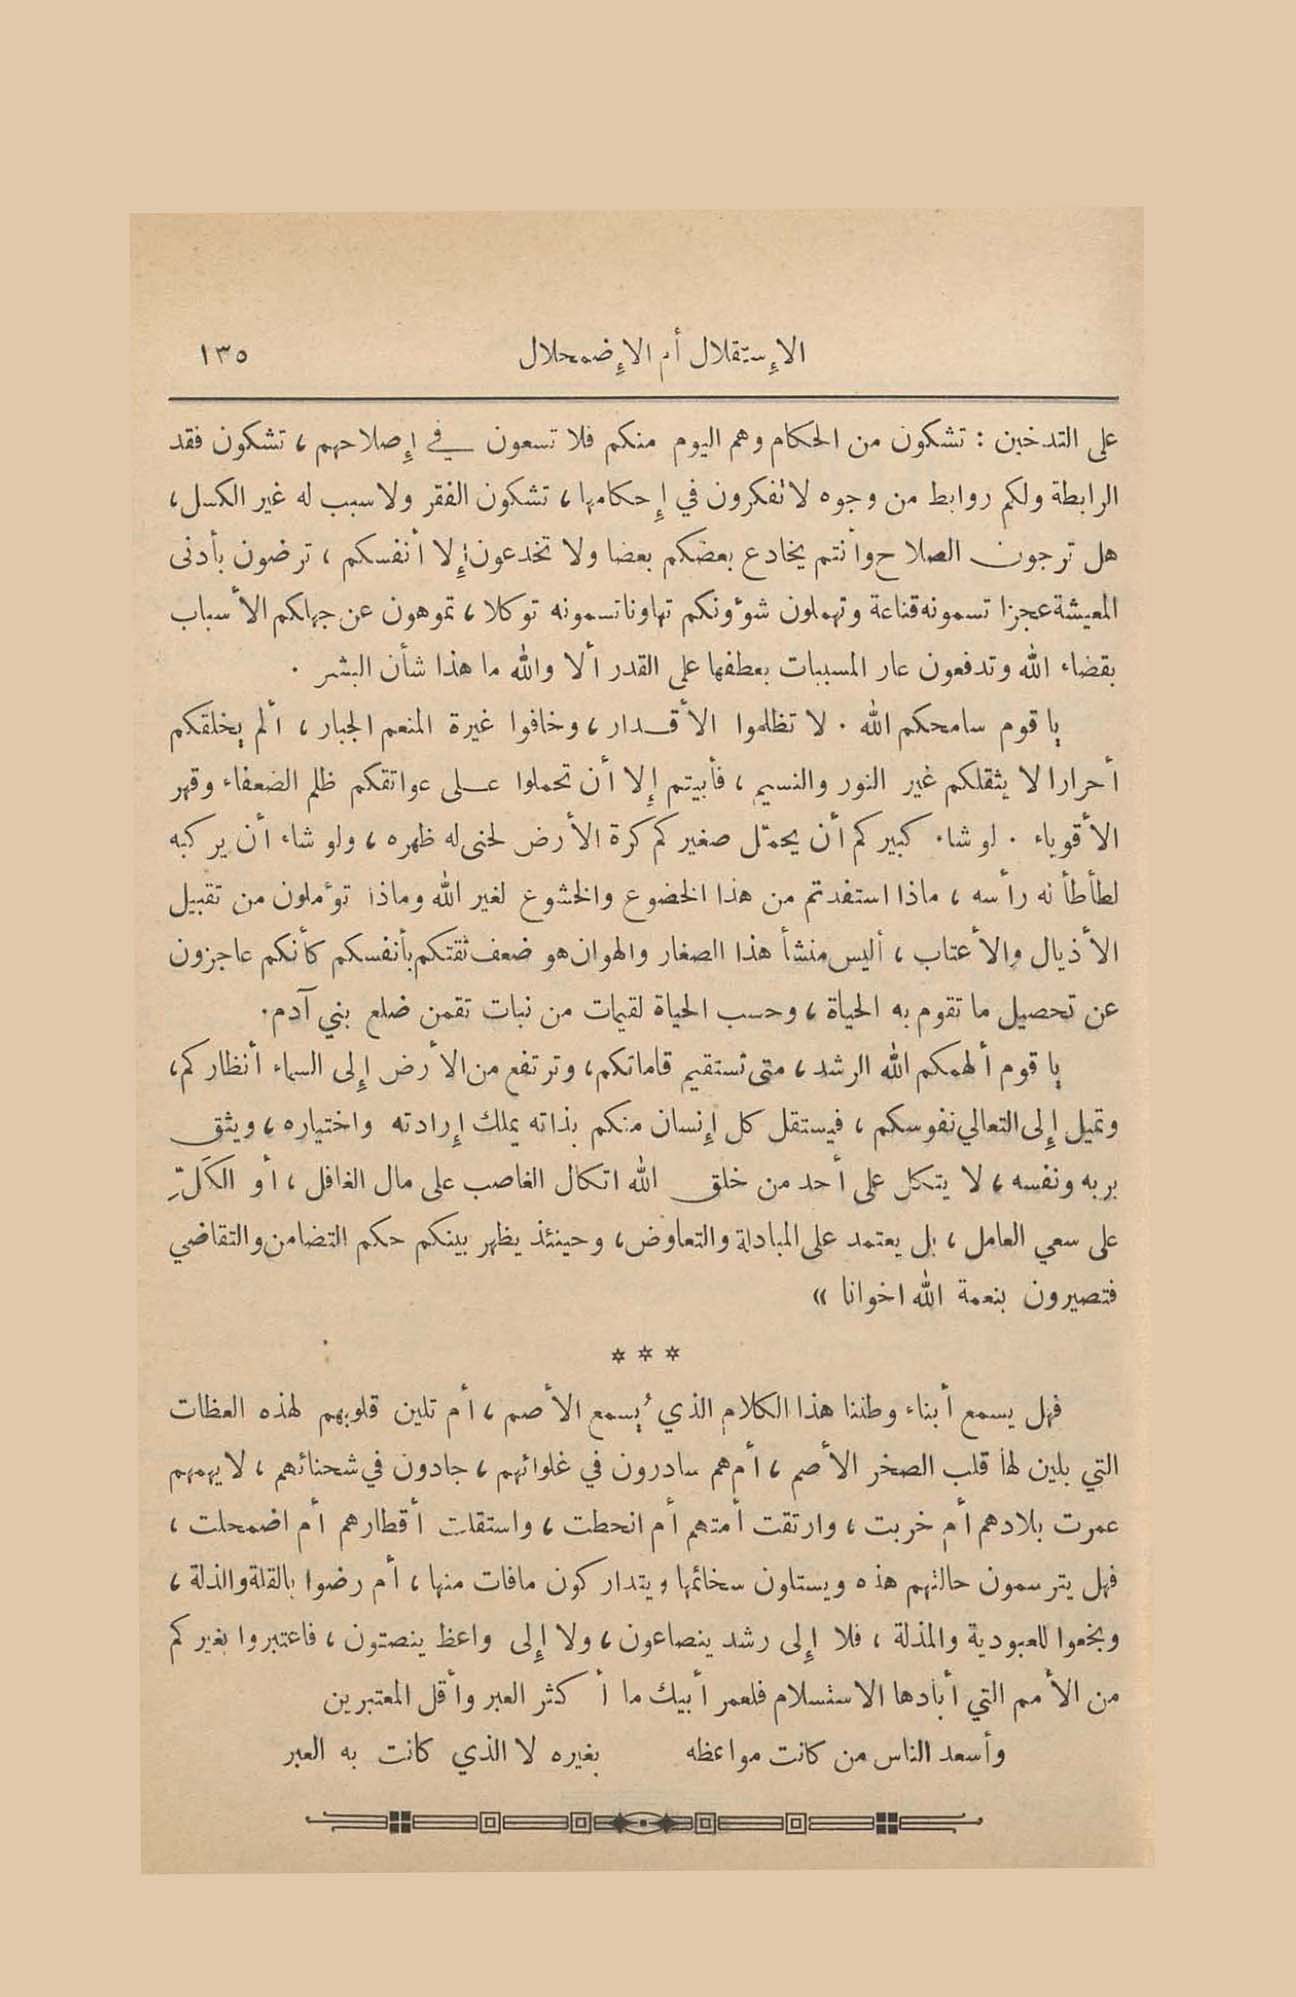 الإستقلال أم الإضمحلال ١٣٥
على التدخين : تشكون من الحكام وهم اليوم منكم فلا تسعون في إصلاحهم ، تشكون فقد
الرابطة ولكم روابط من وجوه لا تفكرون في إحكامها ، تشكون الفقر ولا سبب له غير الكسل ،
هل ترجون الصلاح وأنتم يخادع بعضكم بعضا ولا تخدعون إلا أنفسكم ، ترضون بأدنى
المعيشة عجزا تسمونه قناعة وتهملون شؤونكم تهاونا تسمونه توكلا ، تموهون عن جهلكم الأسباب
بقضاء الله وتدفعون عار المسببات بعطفها على القدر ألا والله ما هذا شأن البشر .
يا قوم سامحكم الله . لا تظلموا الأقدار ، وخافوا غيرة المنعم الجبار ، ألم يخلقكم
أحرارا لا يثقلكم غير النور والنسيم ، فأبيتم إلا أن تحملوا على عواتقكم ظلم الضعفاء وقهر
الأقوياء . لو شاء كبيركم أن يحمّل صغيركم كرة الأرض لحنى له ظهره ، ولو شاء أن يركبه
لطأطأ نه رأسه ، ماذا استفدتم من هذا الخضوع والخشوع لغير الله وماذا تؤملون من تقبيل
الأذيال والأعتاب ، أليس منشأ هذا الصغار والهوان هو ضعف ثقتكم بأنفسكم كأنكم عاجزون
عن تحصيل ما تقوم به الحياة ، وحسب الحياة لقيمات من نبات تقمن ضلع بني آدم .
يا قوم ألهمكم الله الرشد ، متى تستقيم قاماتكم ، وترتفع من الأرض إلى السماء أنظاركم ،
وتميل إلى التعالي نفوسكم ، فيستقل كل إنسان منكم بذاته يملك إرادته واختياره ، ويثق
بربه ونفسه ، لا يتكل على أحد من خلق الله اتكال الغاصب على مال الغافل ، أو الكَلِّ
على سعي العامل ، بل يعتمد على المبادلة والتعاوض ، وحينئذ يظهر بينكم حكم التضامن والتقاضي
فتصيرون بنعمة الله اخوانا »
* * *
فهل يسمع أبناء وطننا هذا الكلام الذي يُسمع الأصم ، أم تلين قلوبهم لهذه العظات
التي يلين لها قلب الصخر الأصم ، أم هم سادرون في غلوائهم ، جادون في شحنائهم ، لا يهمهم
عمرت بلادهم أم خربت ، وارتقت أمتهم أم انحطت ، واستقلت أقطارهم أم اضمحلت ،
فهل يترسمون حالتهم هذه ويستلون سخائمها ويتداركون مافات منها ، أم رضوا بالقلة والذلة ،
وبخعوا للعبودية والمذلة ، فلا إلى رشد ينصاعون ، ولا إلى واعظ ينصتون ، فاعتبروا بغيركم
من الأمم التي أبادها الاستسلام فلعمر أبيك ما أكثر العبر وأقل المعتبرين
وأسعد الناس من كانت مواعظه بغيره لا الذي كانت به العبر